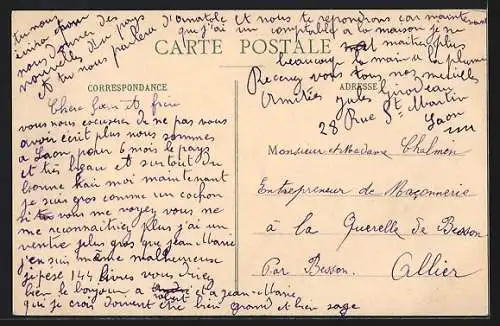 CARTE POSTALE
CORRESPONDANCE
ADRESSE
Chere Sœur et frère
vous nous excuserez de ne pas vous
avoir écrit plus nous sommes
a Laon pour 6 mois le pays
et très beau et surtout du
bonne kai moi maintenant
je suis gros comme un cochon
si vous me voyez vous ne
me reconnaitriez plus j'ai un
ventre plus gros que jean Marie
j'en suis même malheureuse
je pese 144 livres vous direz
bien le bonjour a robert et a jean Marie
que je crois doivent etre bien grand et bien sage
tu nous
écrira pour
nous donner des
nouvelles du pays
et tu nous parlera d'Anatole et nous te repondrons car maintenant
que j'ai un comptable a la maison je ne
maitrise plus
beaucoup la main a la plume
Recevez vous tous nos meilleurs
Amitiés jules Girodeau
28 Rue St Martin
Laon
Monsieur et Madame Chalmin
Entrepreneur de Maçonnerie
à la Querelle de Besson
Par Besson. Allier